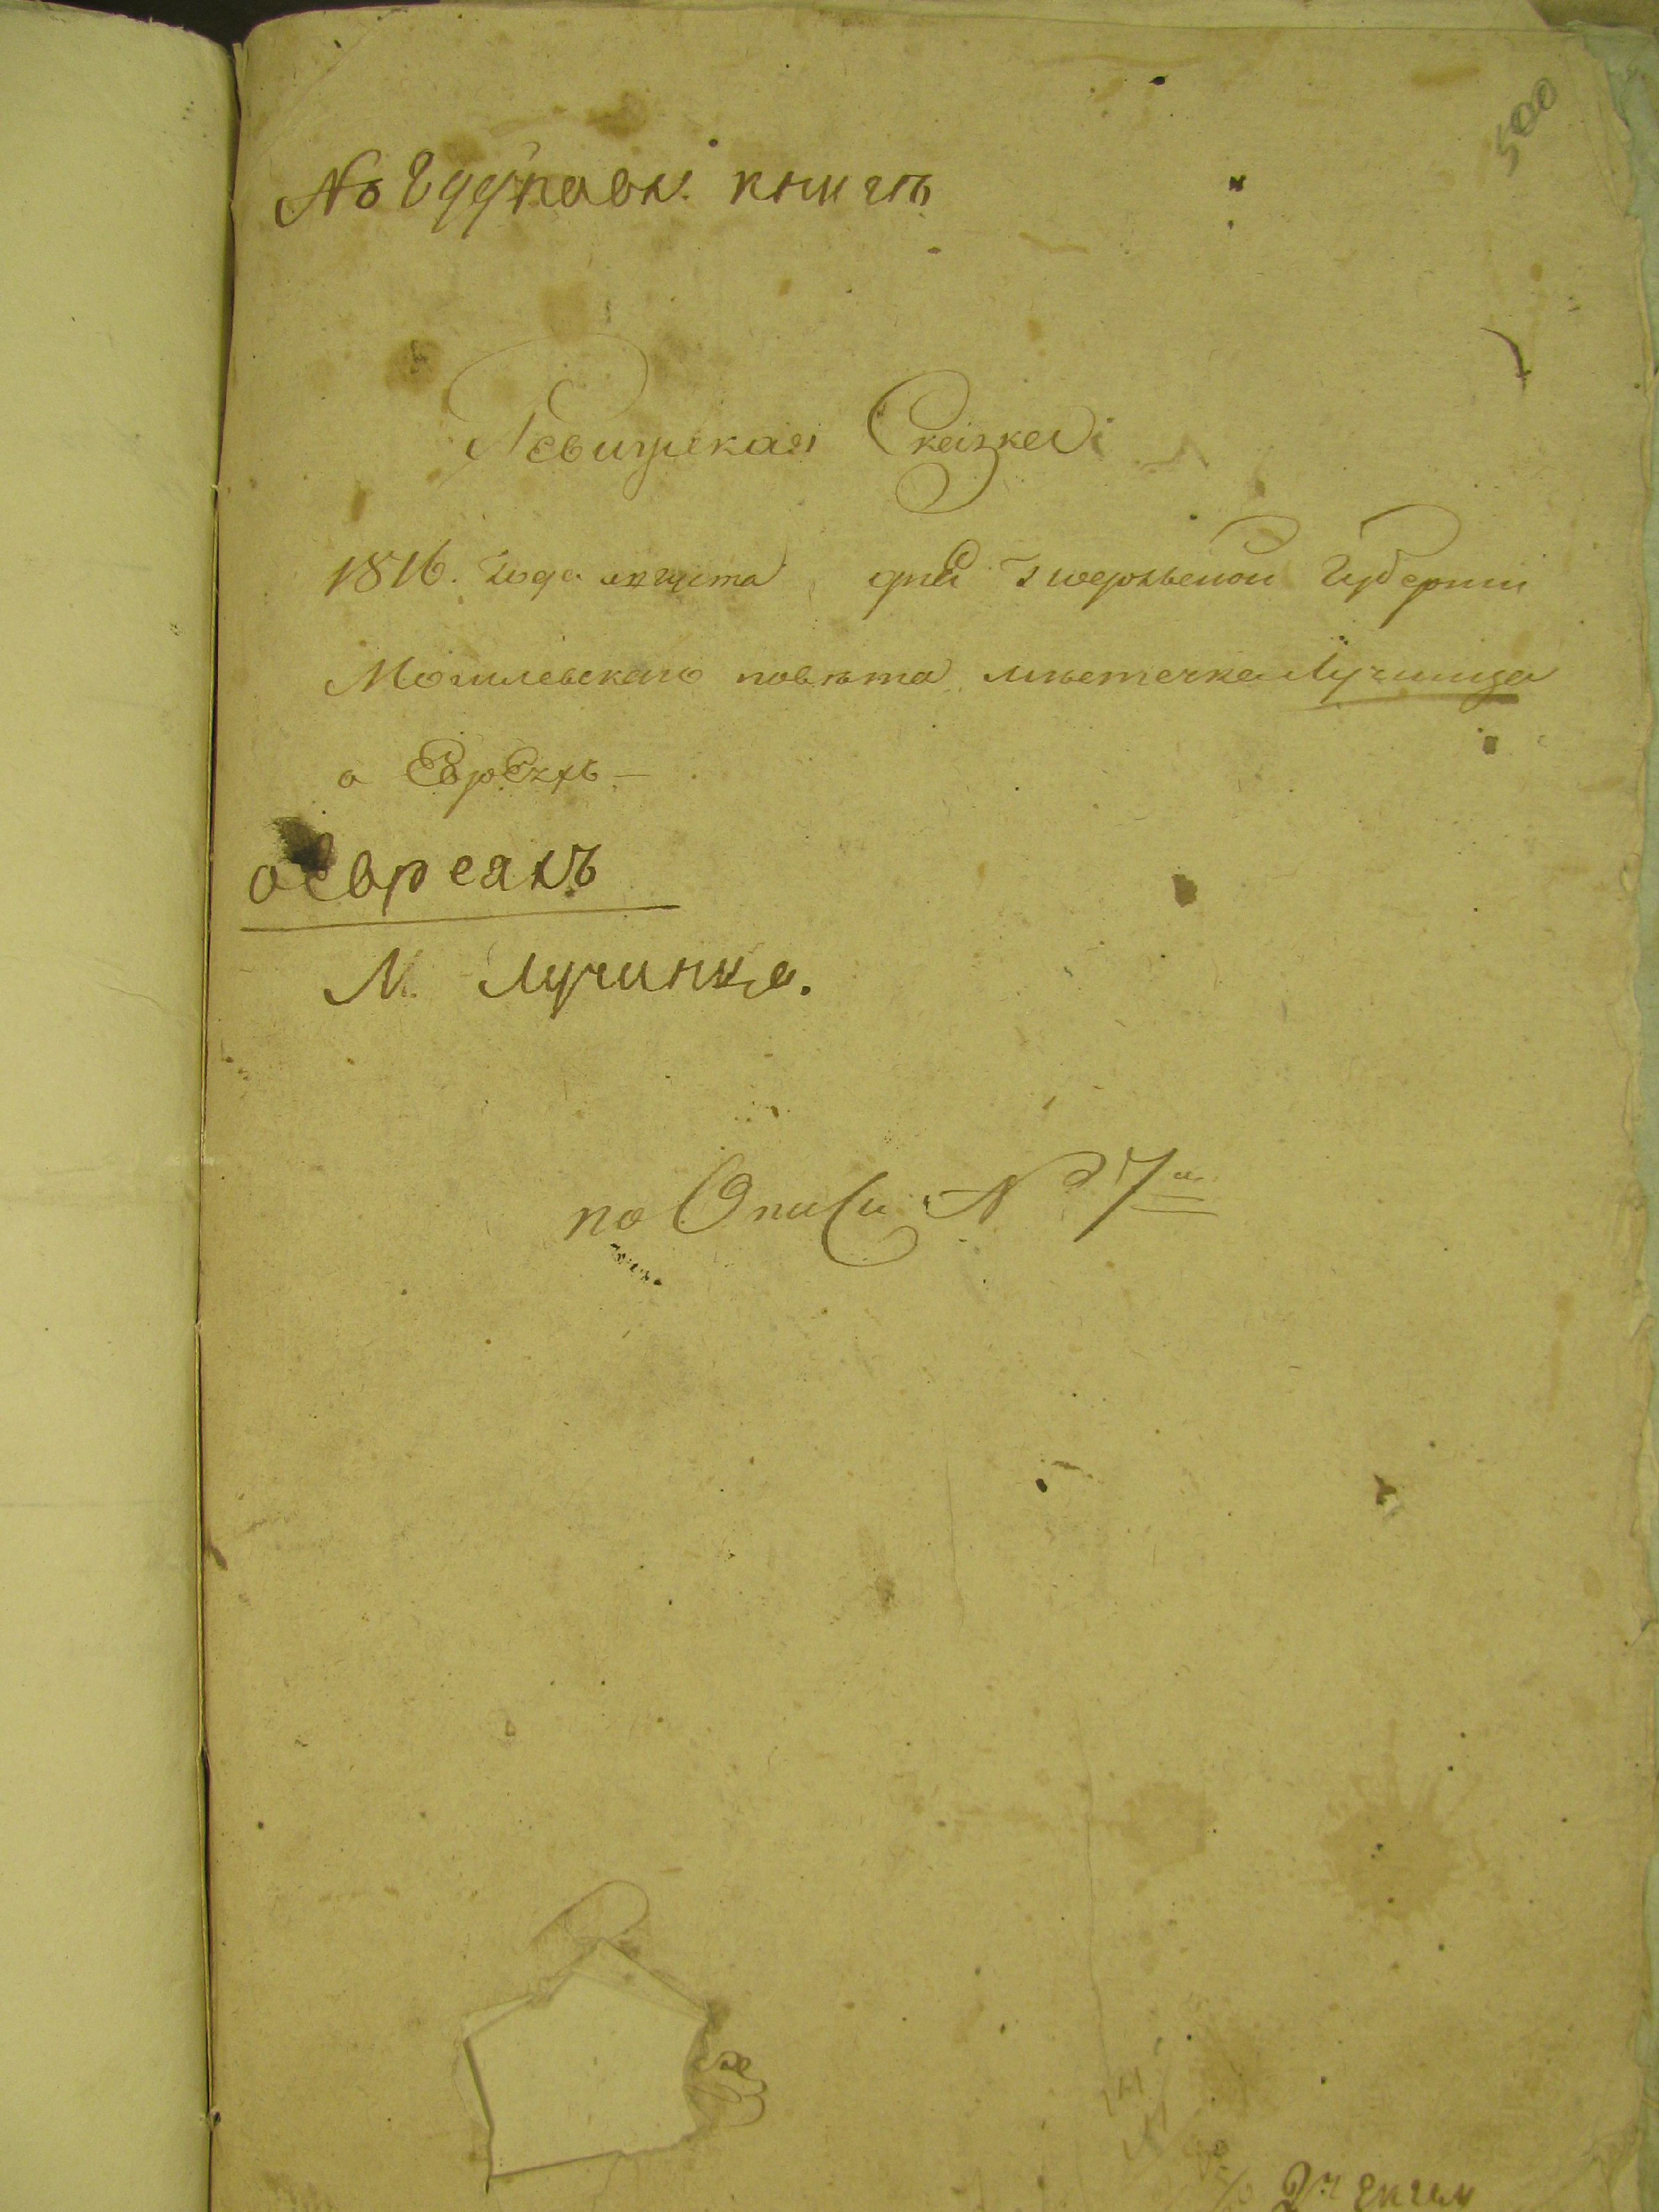 500
No ... книгъ
Ревижская Сказка
1816. года августа дня Подольской Губернии
Могилевскаго повѣта мѣстечка Лучинца
о Евреяхъ –
о Евреяхъ
М. Лучинца.
по Описи № 7й